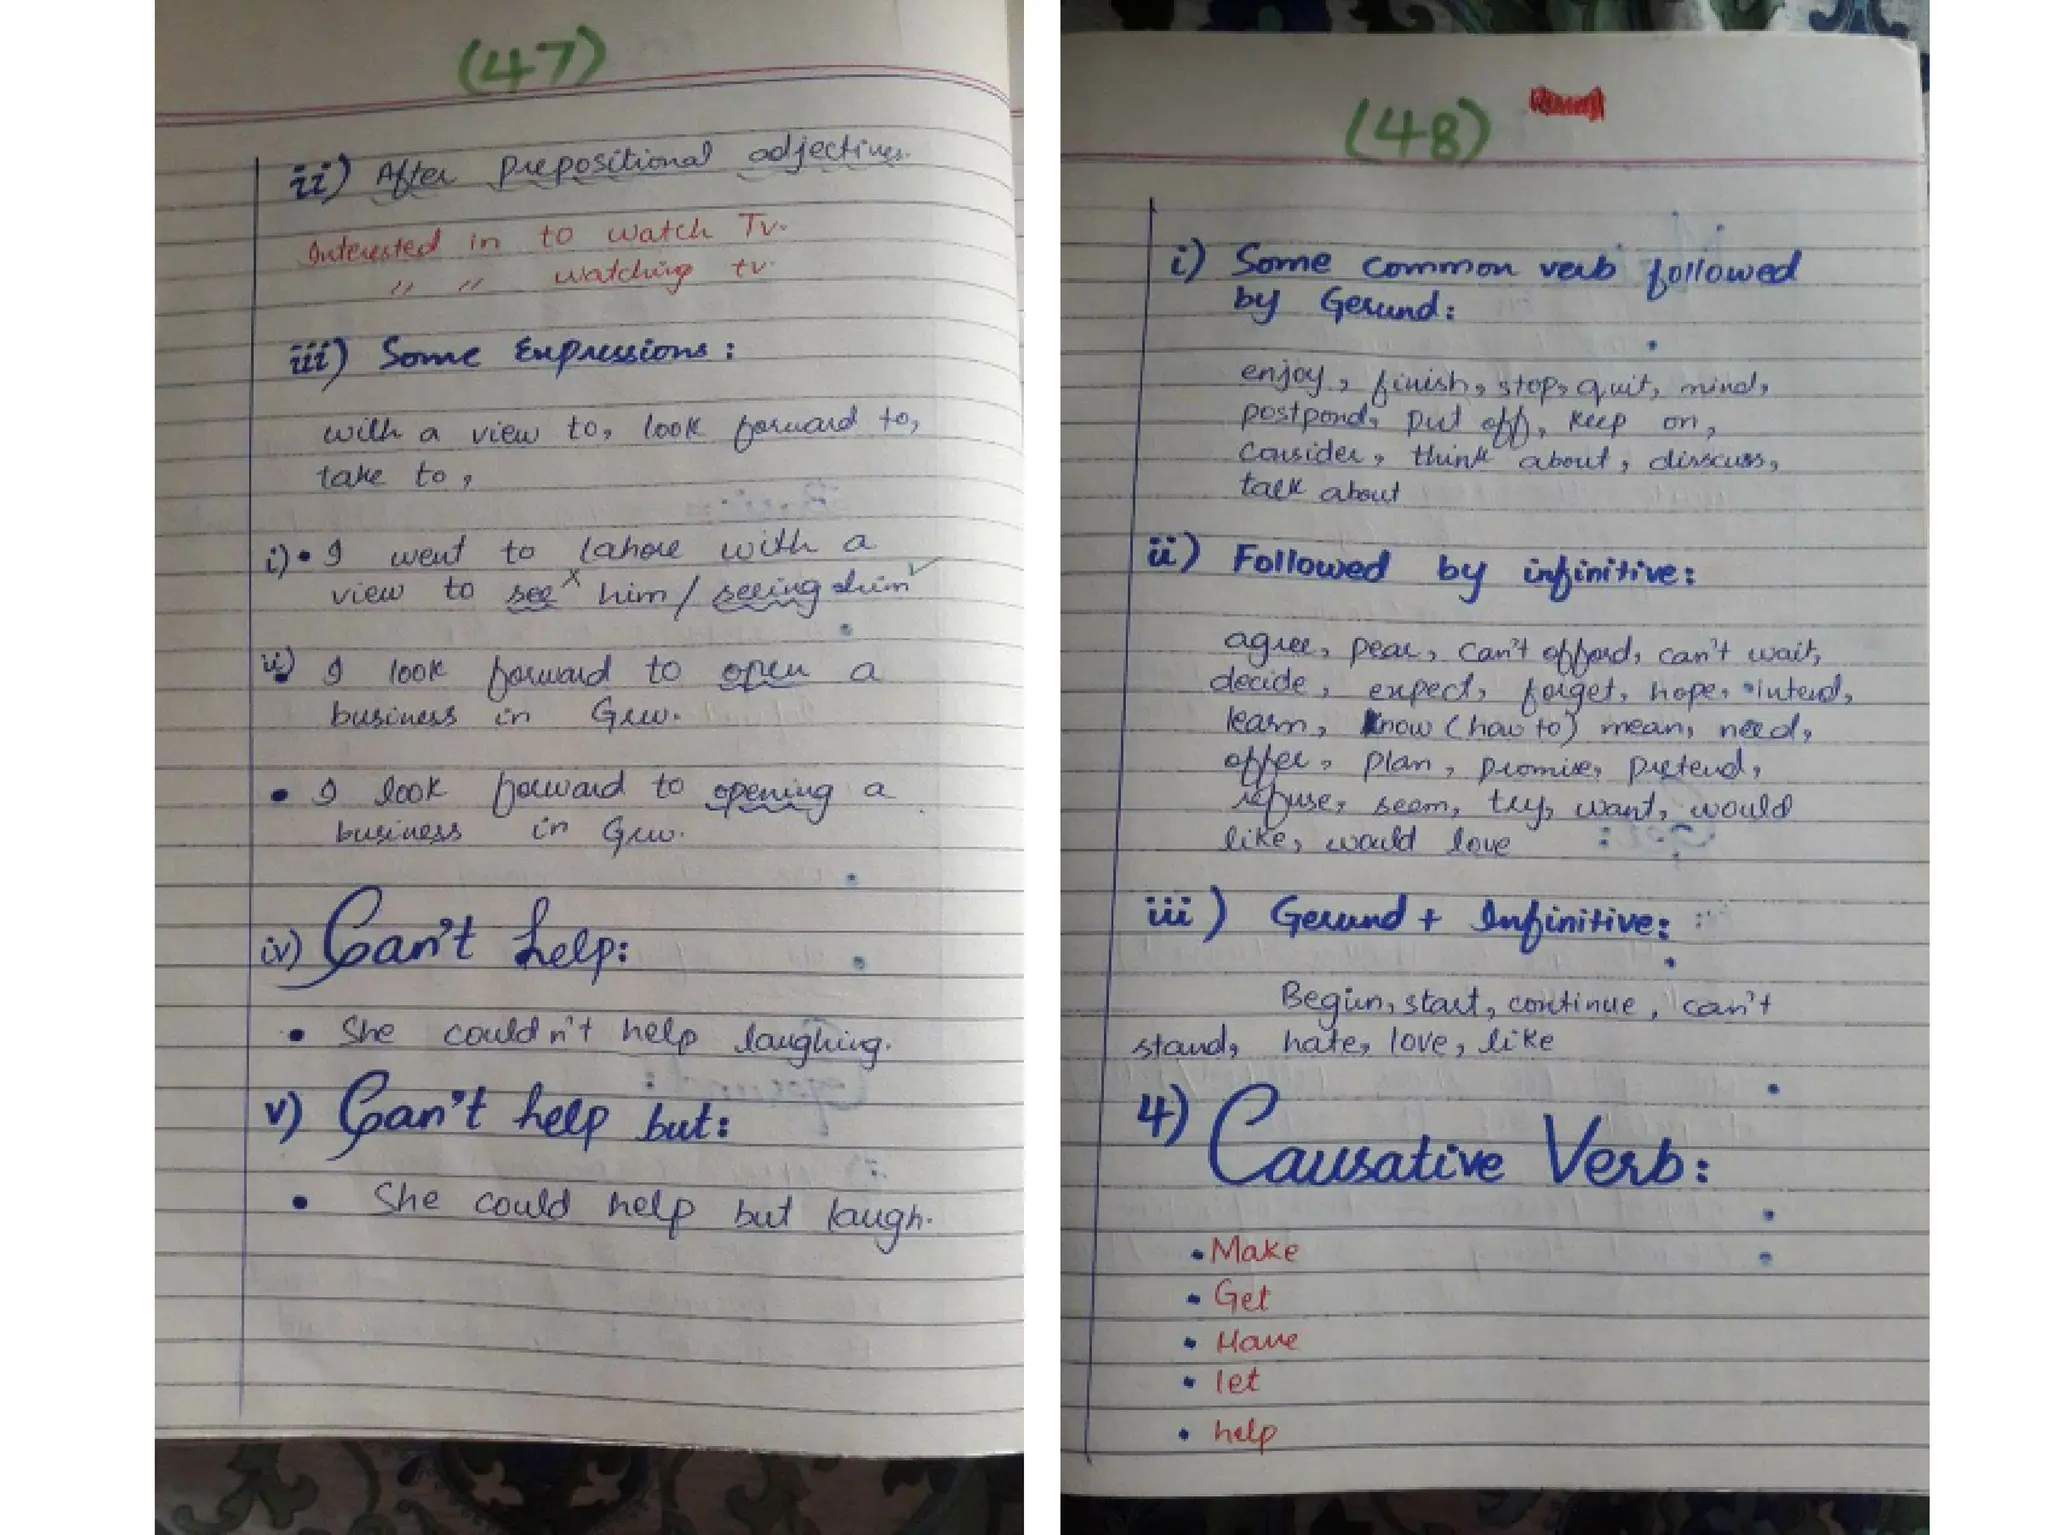 (47)
ii) After prepositional adjectives.
Interested in to watch Tv.
" " watching tv.
iii) Some Expressions:
with a view to, look forward to,
take to,
i) • I went to lahore with a
view to see x him / seeing him ✓
ii) I look forward to open a
business in Grw.
• I look forward to opening a
business in Grw.
iv) Can't help:
• She couldn't help laughing.
v) Can't help but:
• She could help but laugh.
(48)
i) Some common verb followed
by Gerund:
enjoy, finish, stop, quit, mind,
postpond, put off, keep on,
consider, think about, disscuss,
talk about
ii) Followed by infinitive:
agree, pear, can't afford, can't wait,
decide, expect, forget, hope, intend,
learn, know (how to) mean, need,
offer, plan, promise, pretend,
refuse, seem, try, want, would
like, would love
iii) Gerund + Infinitive:
Begin, start, continue, can't
stand, hate, love, like
4) Causative Verb:
• Make
• Get
• Have
• let
• help